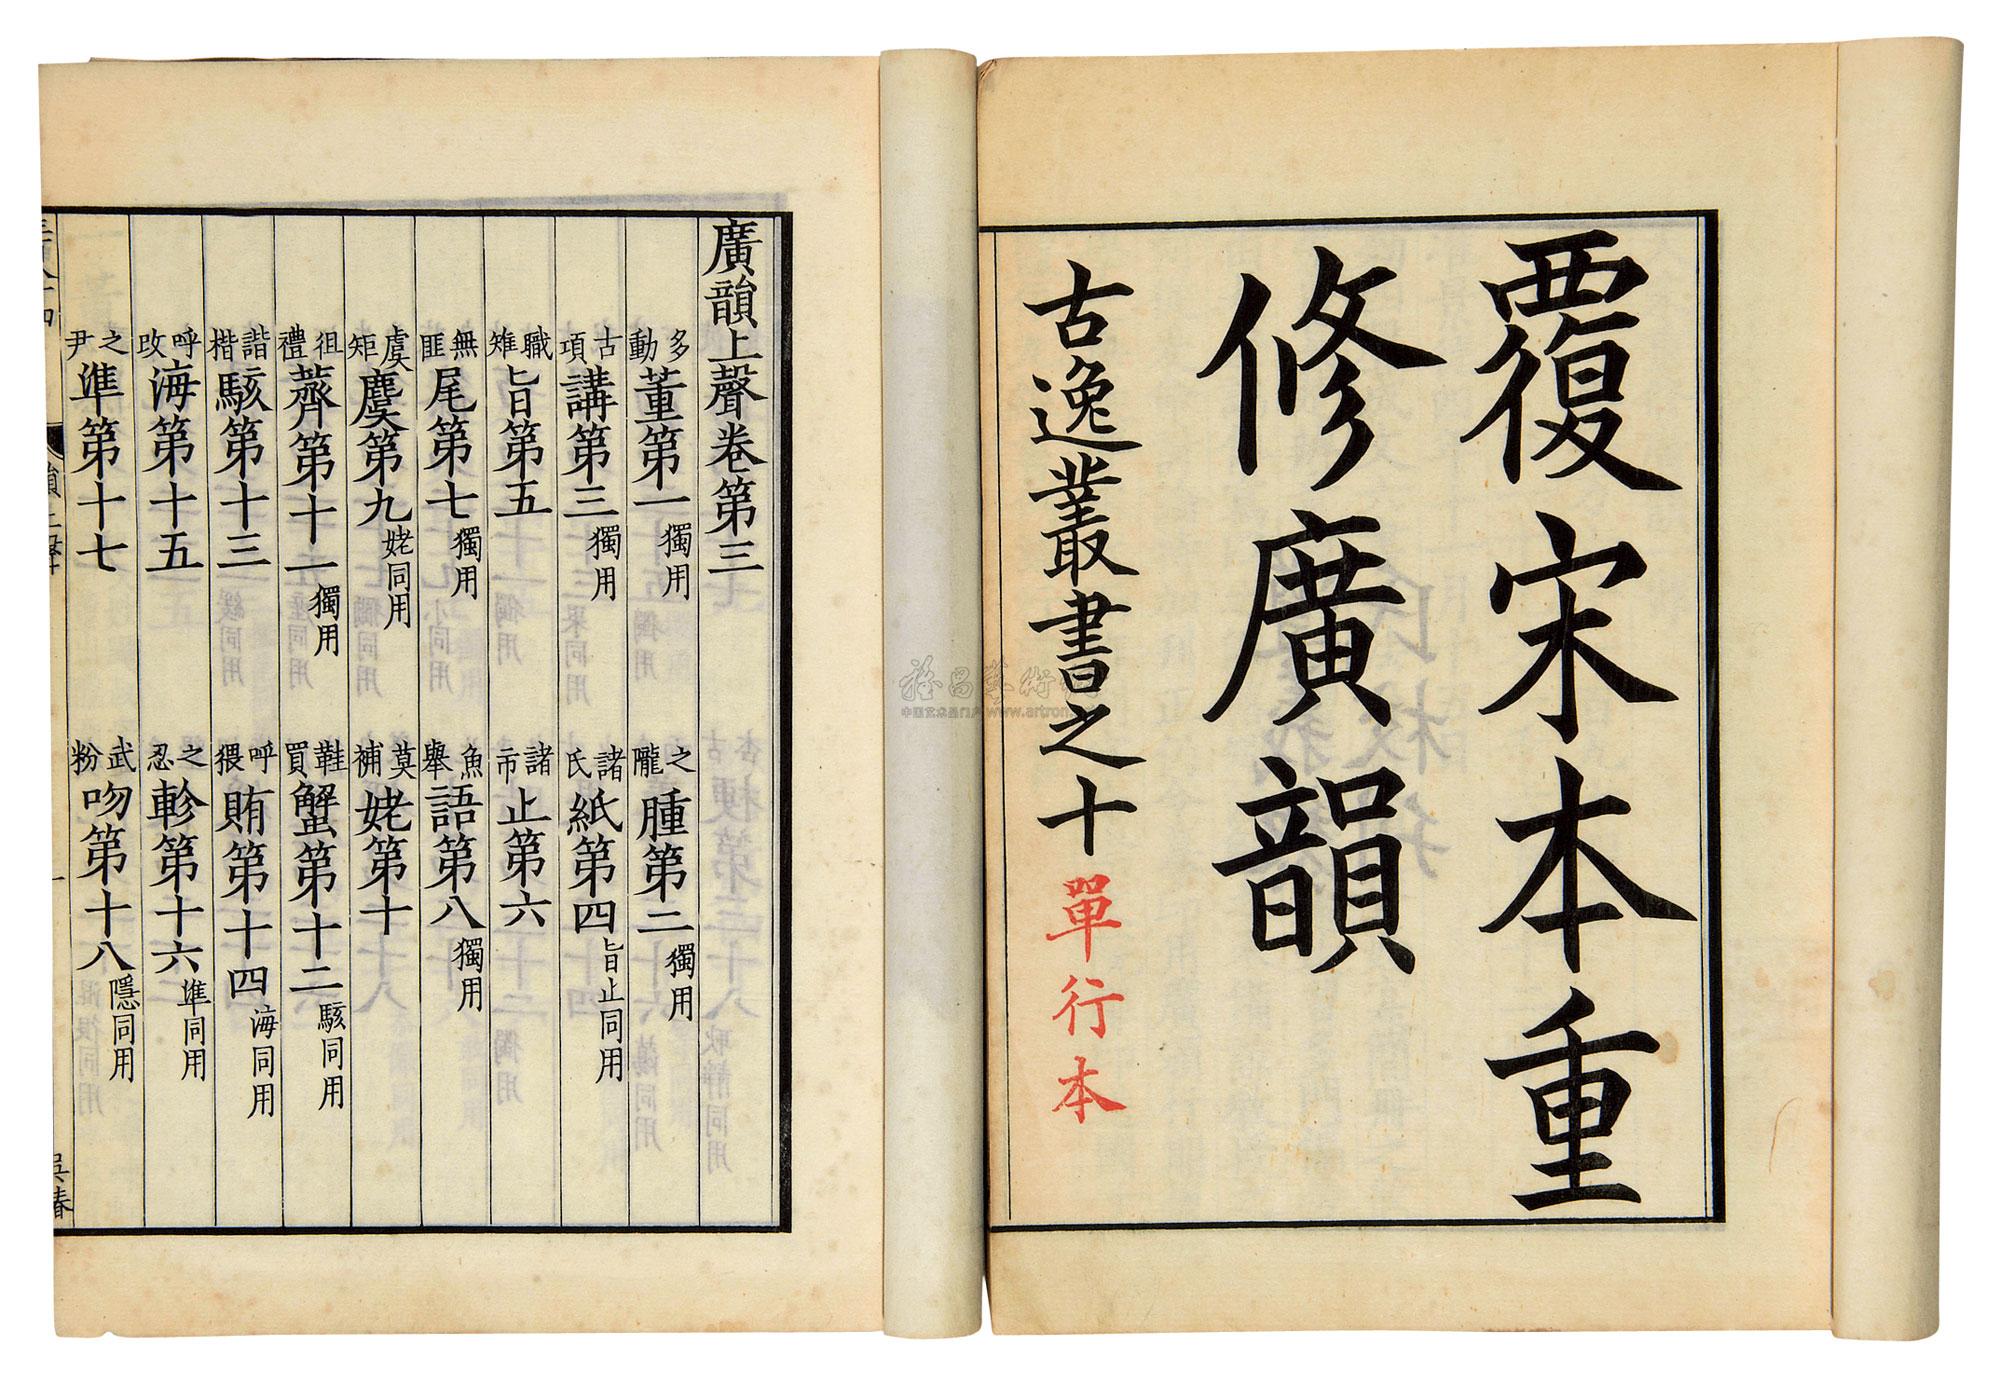 覆宋本重
修廣韻
古逸叢書之十單行本
廣韻上聲卷第三
多動董第一獨用 之隴腫第二獨用
古項講第三獨用 諸氏紙第四旨止同用
職雉旨第五 諸市止第六
無匪尾第七獨用 魚舉語第八獨用
虞矩麌第九姥同用 莫補姥第十
徂禮薺第十一獨用 鞋買蟹第十二駭同用
諧楷駭第十三 呼猥賄第十四海同用
呼改海第十五 之忍軫第十六準同用
之尹準第十七 武粉吻第十八隱同用
吳椿
中国艺术品门户 www.artron.